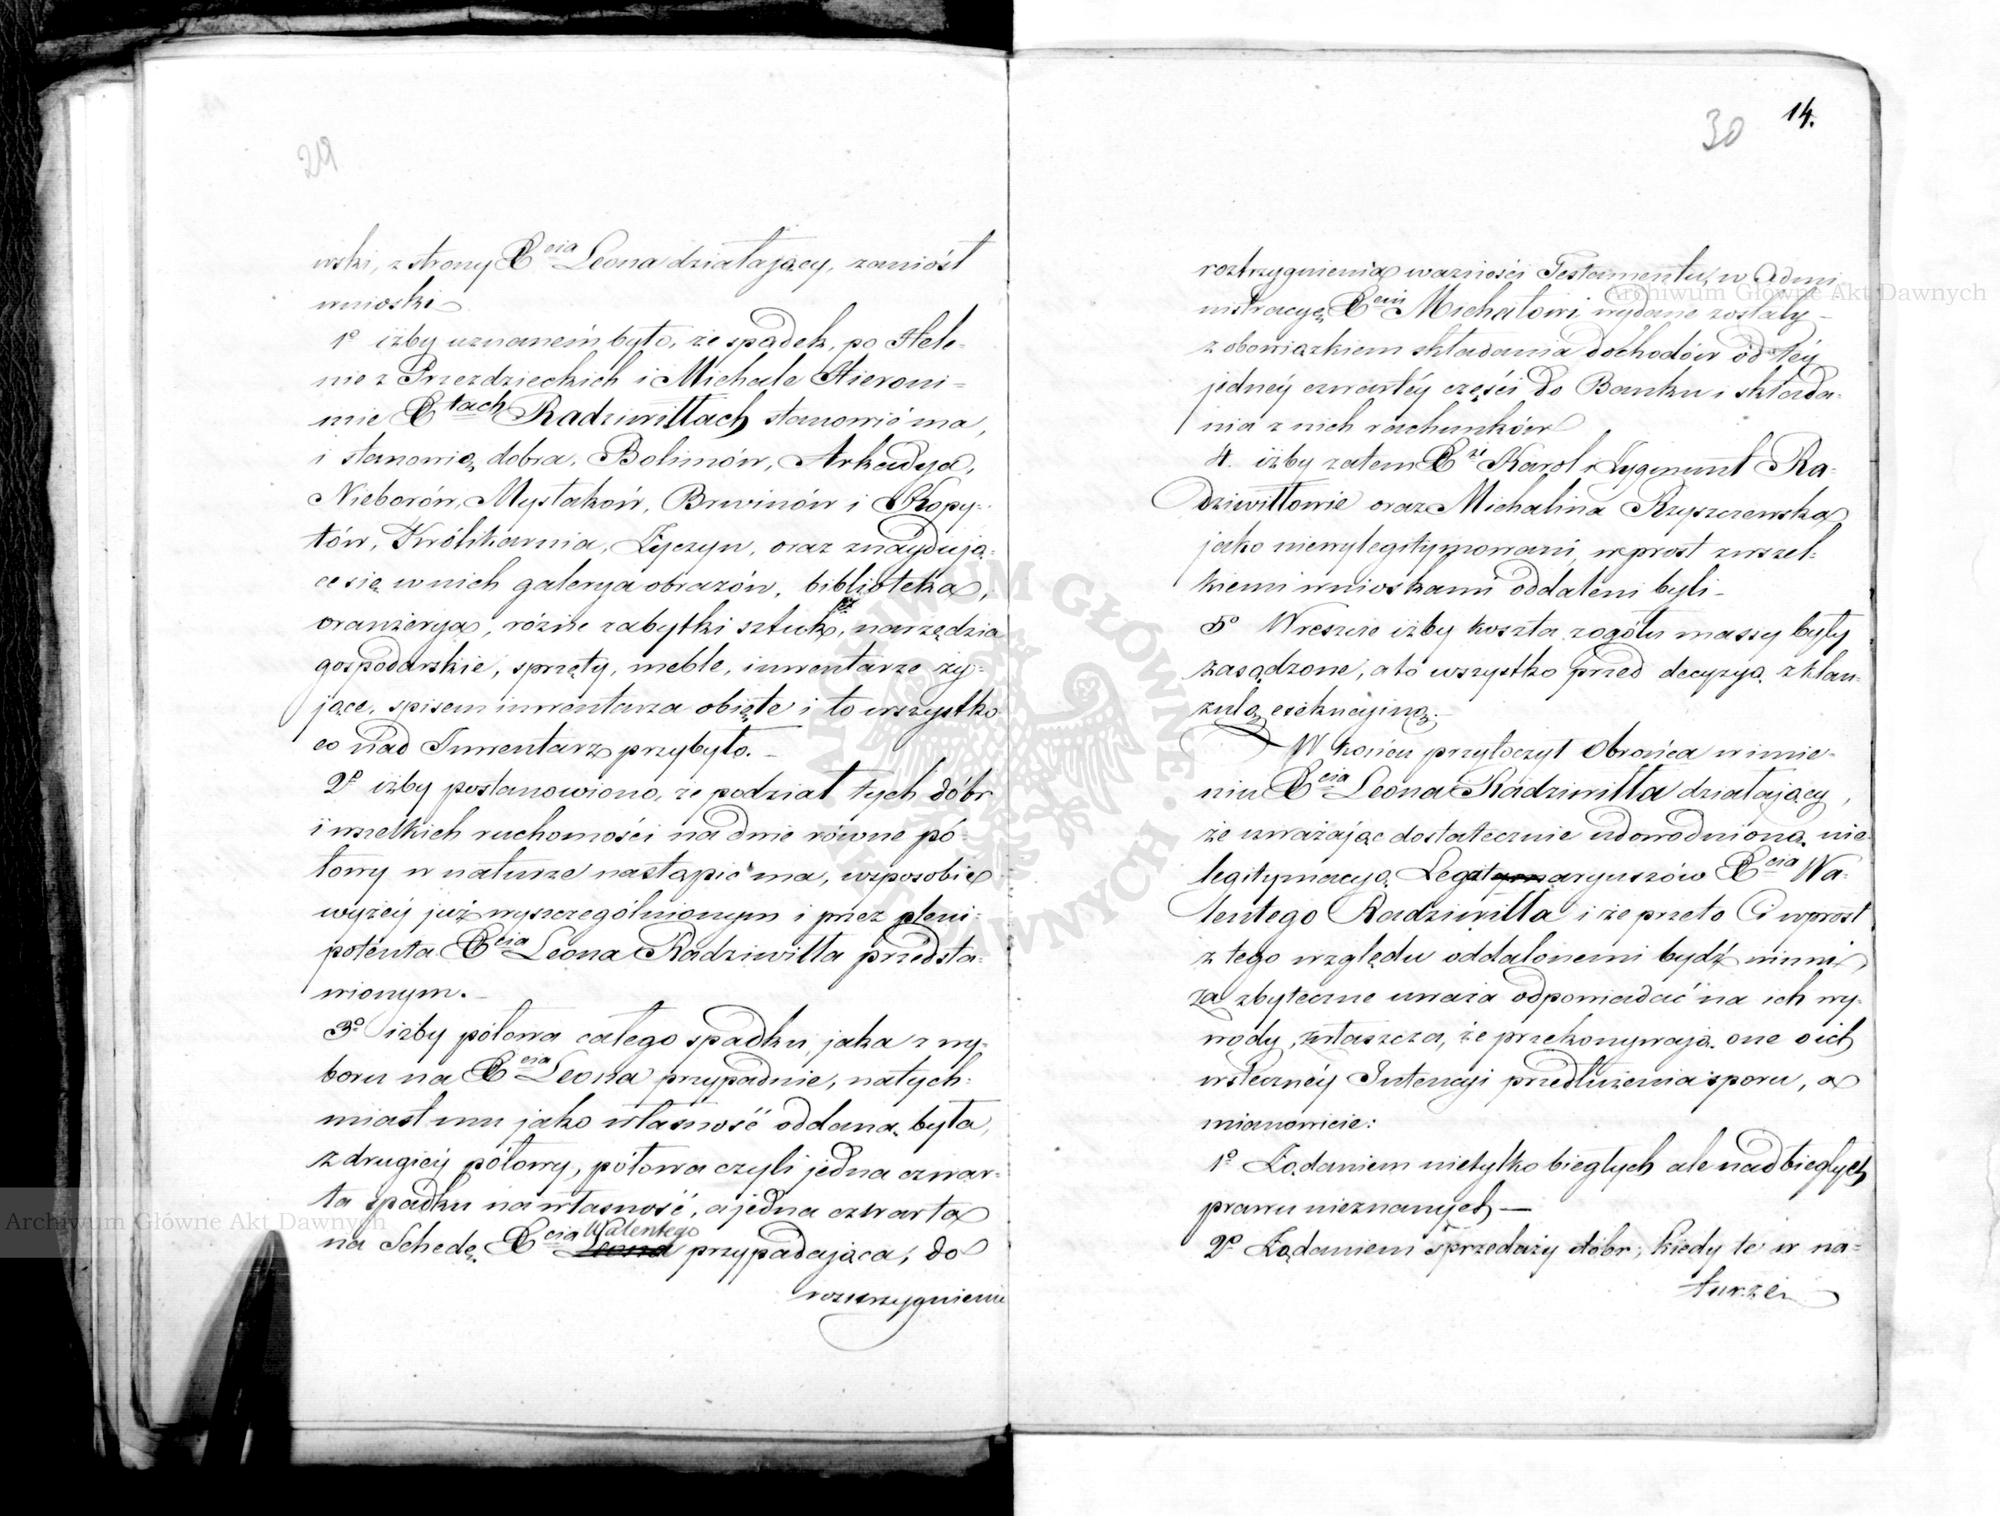 29
wski, z strony Xcia Leona działający, zaniósł
wnioski
1o iżby uznaném było, że spadek, po Hele-
nie z Przezdzieckich i Michale Hieroni-
mie Xtach Radziwiłłach stanowić ma,
i stanowią dobra, Bolimów, Arkadya,
Nieborów, Mysłaków, Brwinów i Kopy-
tów, Królikarnia, Życzyn, oraz znaydują-
ce się w nich galerya obrazów, biblioteka,
oranżerya, różne zabytki sztuk, narzędzia
gospodarskie, sprzęty, meble, inwentarze ży-
jące, spisem inwentarza objęte i to wszystko
co nad Inwentarz przybyło. -
2o iżby postanowiono, że podział tych dóbr
i wszelkich ruchomości na dwie równe po-
łowy w naturze nastąpić ma, w sposobie
wyżéy już wyszczególnionym i przez pleni-
potenta Xcia Leona Radziwiłła przedsta-
wionym. -
3o iżby połowa całego spadku, jaka z wy-
boru na Xcia Leona przypadnie, natych-
miast mu jako własność oddaną była,
z drugiéy połowy, połowa czyli jedna czwar-
ta spadku na własność, a jedna czwarta
na Schedę Xcia Leona Walentego przypadająca, do
rozstrzygnienia
30 14.
roztrzygnienia ważności Testamentu, w Admi-
nistracyę Xciu Michałowi wydane zostały -
z obowiązkiem składania dochodów od téy
jednéy czwartéy części do Banku i składa-
nia z nich rachunków
4. iżby zatem Xże Karol i Zygmunt Ra-
dziwiłłowie oraz Michalina Rzyszczewska
jako niewylegitymowani, wprost z wszel-
kiemi wnioskami oddaleni byli -
5o Wreszcie iżby koszta z ogółu massy były
zasądzone, a to wszystko przed decyzyą z klau-
zulą exekucyiną. -
W końcu przytoczył Obrońca w imie-
niu Xcia Leona Radziwiłła działający,
że uważając dostatecznie udowodnioną nie
legitymacyą Legitym aryuszów Xcia Wa-
lentego Radziwiłła i że przeto Ci wprost
z tego względu oddalonemi bydź winni,
za zbyteczne uważa odpowiadać na ich wy-
wody, zwłaszcza, że przekonywają one o ich
wsteczney Intencyi przedłużenia sporu, a
mianowicie:
1o Żądaniem nietylko biegłych ale nadbiegłych
prawu nieznanych —
2o Żądaniem sprzedaży dóbr, kiedy te w na-
turze
Archiwum Główne Akt Dawnych
Archiwum Główne Akt Dawnych
ARCHIWUM GŁÓWNE AKT DAWNYCH